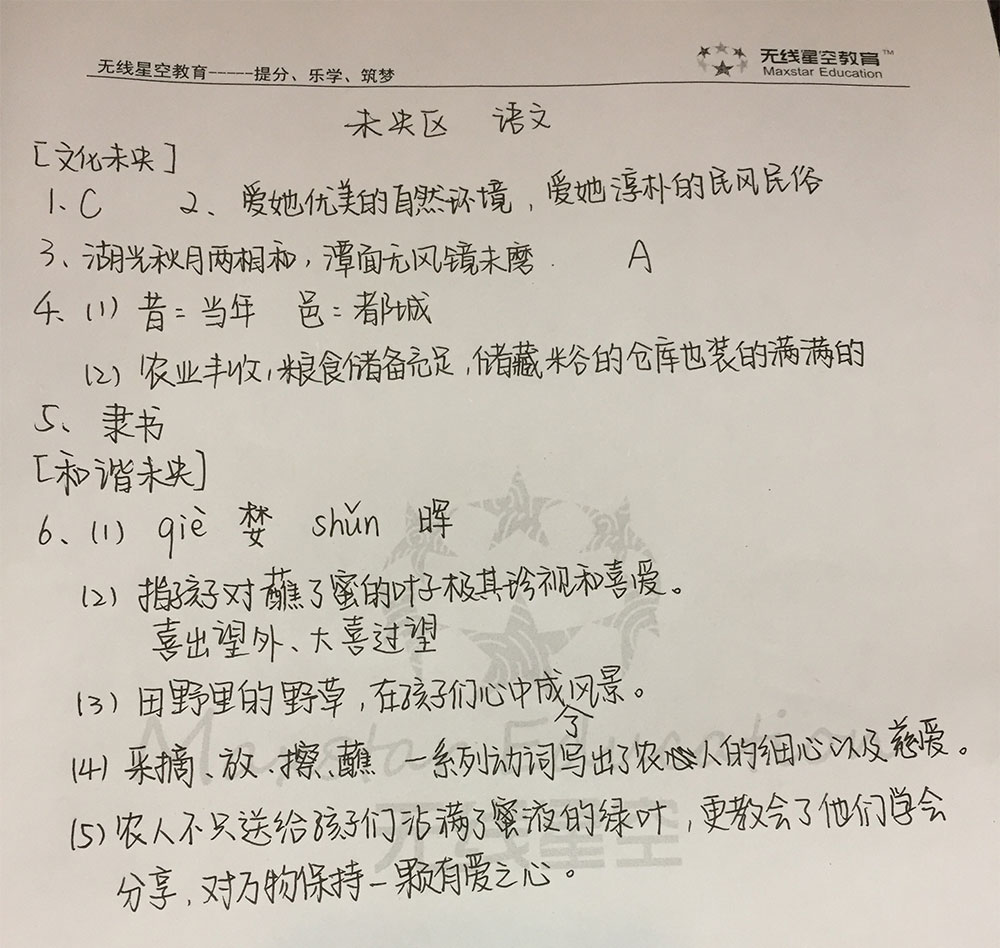 无线星空教育-----提分、乐学、筑梦
无线星空教育™
Maxstar Education
未央区 语文
[文化未央]
1、C 2、爱她优美的自然环境，爱她淳朴的民风民俗
3、湖光秋月两相和，潭面无风镜未磨. A
4、(1) 昔=当年 邑=都城
(2) 农业丰收，粮食储备充足，储藏米谷的仓库也装的满满的
5、隶书
[和谐未央]
6、(1) qiè 婪 shǔn 晖
(2) 指孩子对蘸了蜜的叶子极其珍视和喜爱。
喜出望外、大喜过望
(3) 田野里的野草，在孩子们心中成了风景。
(4) 采摘、放、擦、蘸 一系列动词写出了农人的细心以及慈爱。
(5) 农人不只送给孩子们沾满了蜜液的绿叶，更教会了他们学会
分享，对万物保持一颗有爱之心。
Maxstar Education
无线星空